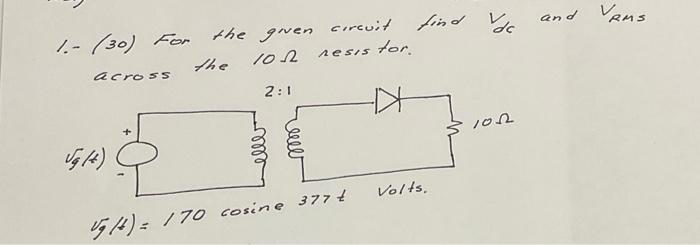 1.- (30) For the given circuit find Vdc and VRMS
across the 10Ω resistor.
2:1
+
vg(t)
-
10Ω
vg(t) = 170 cosine 377t Volts.